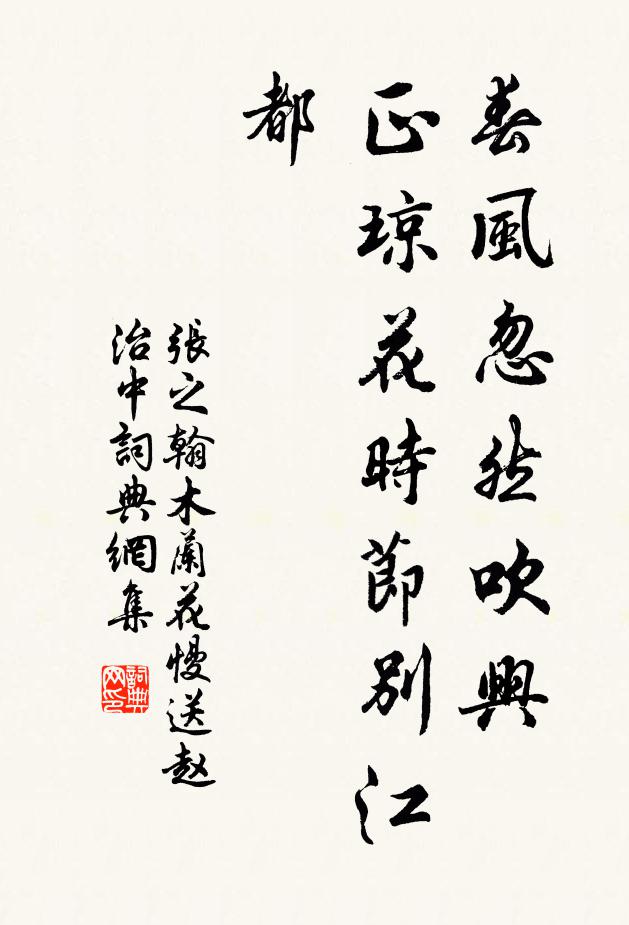 春風忽然吹興
正瓊花時節別江
都
張之翰木蘭花慢送赵
治中詞典網集
詞典网印